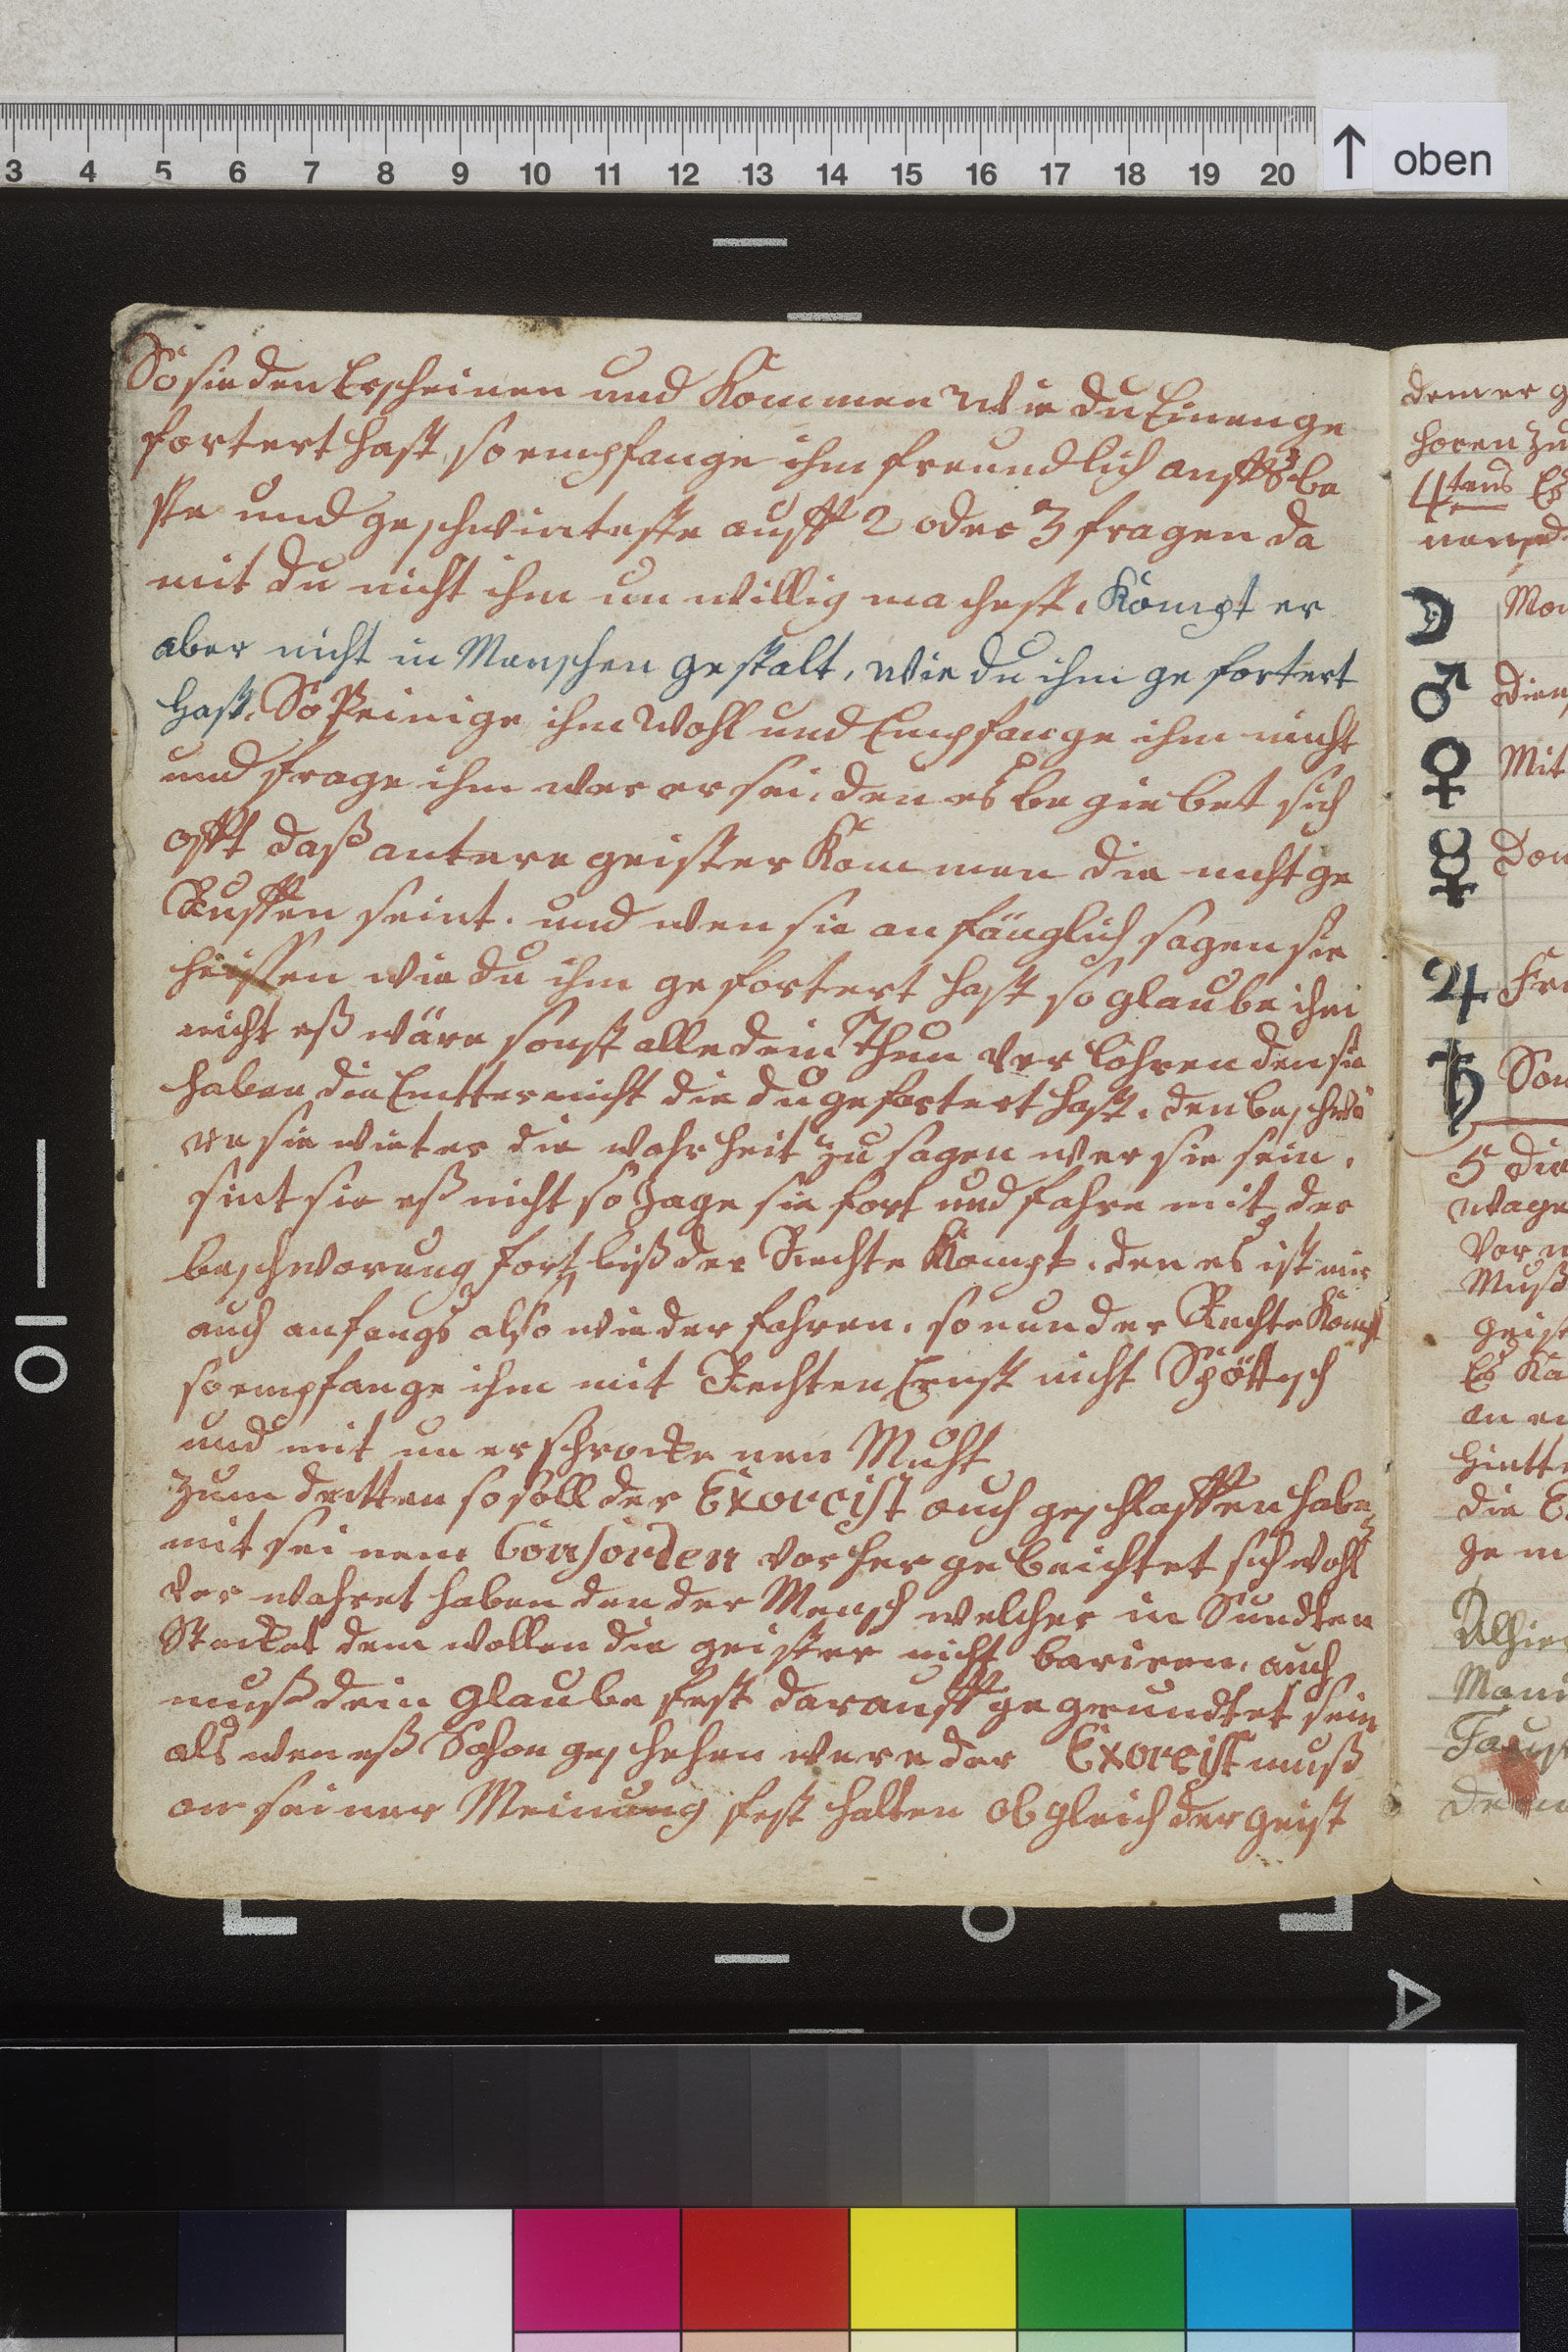 3 4 5 6 7 8 9 10 11 12 13 14 15 16 17 18 19 20
↑ oben
So sie den Erscheinen und Kommen wie du Einen ge
fortert hast, so empfange ihm freundlich auffs be
ste und geschwinteste auff 2 oder 3 fragen da
mit du nicht ihm un willig machest. Kompt er
aber nicht in Menschen gestalt, wie du ihm ge fortert
hast. So Peinige ihm wohl und Empfange ihm nicht
und frage ihm wer er sei, den es be giebet sich
offt daß antere geister Kommen die nicht ge
Ruffen seint. und wen sie anfänglich sagen sie
heissen wie du ihm gefortert hast so glaube ihm
nicht eß wäre sonst alle dein Thun ver lohren den sie
haben die Emtter nicht die du gefortert hast. den beschwö
re sie wieter die wahrheit zu sagen wer sie sein.
sint sie eß nicht so Jage sie fort und fahre mit der
beschworung fort biß der Rechte Kompt. den es ist mir
auch anfangs also wieder fahren. so nun der Rechte Kompt
so empfange ihm mit Rechten Ernst nicht Spöttisch
und mit un erschrocke nen Muht
Zum dritten so soll der Exorcist auch geschlaffen habe
mit sei nem Consorten vorher gebeichtet sich wohl
ver wahret haben den der Mensch welcher in Sundten
Stecket dem wollen die geister nicht barieren, auch
muß dein glaube fest darauff gegrundtet sein
als wen eß Schon geschehen were der Exorcist muß
an seiner Meinung fest halten ob gleich der geist
dem er g
horen zu
4tens Es
☽ Mon
♂ Dien
♀ Mit
☿ Don
♃ Fre
♄ Son
5 Die
wage
vor
Muß
geist
Es Ka
an
hintte
die E
Je m
Alhier
Faust